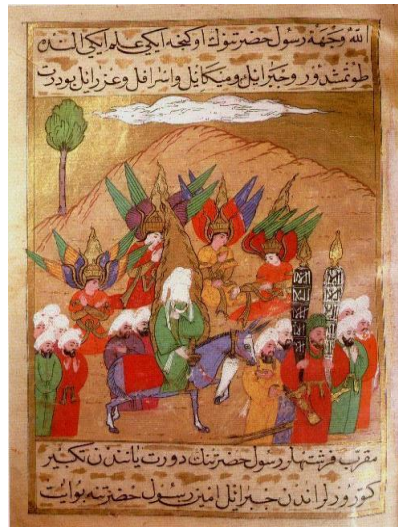 الله وجهة رسول حضرتنوك اوكنجه ايكى علم ايكى الندن
طوتمشدور وجبرائل وميكائل واسرافل وعزرائل بو درت
مقرب فرشتهلر رسول حضرتنك دورت يانندن تكبير
اندن جبرائل امين رسول حضرتنه بو ايت